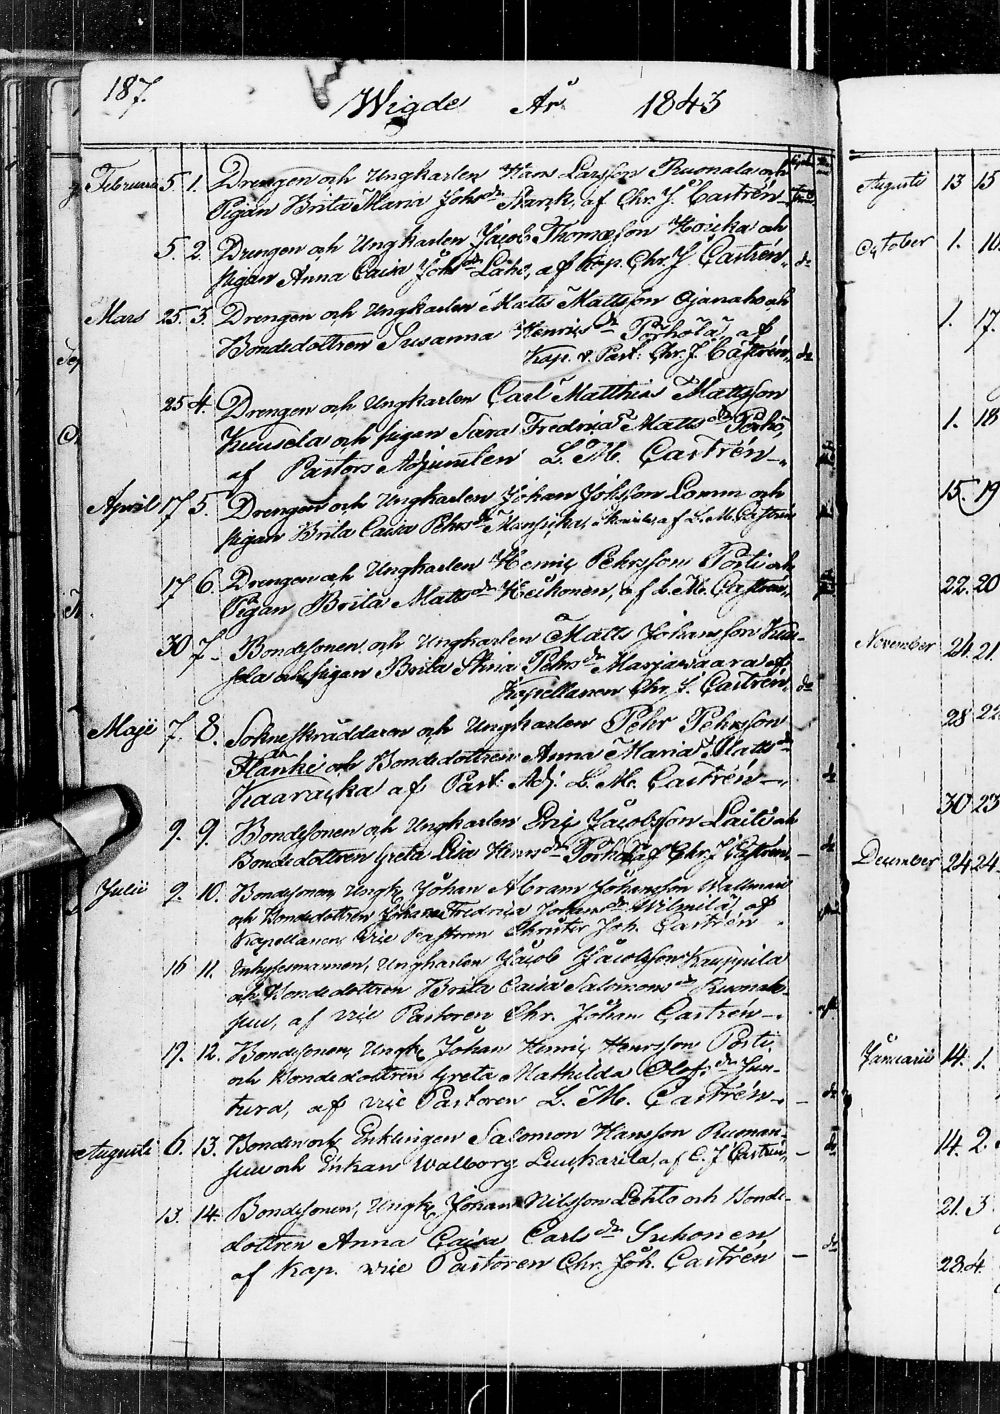 187.
Wigde År 1843
Februarii 5. 1. Drengen och Ungkarlen Hans Larsson Ruonala och
Pigan Brita Maria Johsdr Starck, af Chr. J. Castrén
5. 2. Drengen och Ungkarlen Jacob Thomasson Hoicka och
Pigan Anna Caisa Johsdr Laho, af Kap. Chr. J. Castrén. do
Mars 25. 3. Drengen och Ungkarlen Matts Mattsson Ojanaho och
Bondedottren Susanna Henricsdr Porkola, af
Kap. v. Past. Chr. J. Castrén, do
25 4. Drengen och Ungkarlen Carl Matthias Mattsson
Kuusela och pigan Sara Fredrica Mattsdr
af Pastors Adjuncten L. M. Castrén
April 17 5. Drengen och Ungkarlen Johan Johsson Lomm och
pigan Brita Caisa Pehrsdr af L. M. Castrén
17 6. Drengen och Ungkarlen Henric Pehrsson Porti och
Pigan Brita Mattsdr Heikonen, af L. M. Castrén,
30 7. Bondesonen och Ungkarlen Matts Johansson Kuu-
sela och pigan Brita Stina Pehrsdr Marjawaara af
Kapellanen Chr. J. Castrén, do
Maji 7. 8. Sockneskräddaren och Ungkarlen Pehr Pehrsson
Planki och Bondedottren Anna Maria Mattsdr
Kaaracka af Past. Adj. L. M. Castrén do
9. 9. Bondesonen och Ungkarlen Eric Jacobsson Laiti och
Bondedottren Greta Lisa Henrsdr af Chr. J. Castrén, do
Julii 9. 10. Bondesonen, Ungk. Johan Abram Johansson
och Bondedottren Johana Fredrica Johansdr af
Kapellanen, vice Pastoren Christer Joh. Castrén
16 11. Inhysesmannen, Ungkarlen Jacob Jacobsson Kauppila
och Bondedottren Brita Caisa Salomonsdr Ruonan-
suu, af vice Pastoren Chr. Johan Castrén
19. 12. Bondesonen, Ungk. Johan Henric Henrsson Porti,
och Bondedottren Greta Mathilda Olofsdr Jun-
tura, af vice Pastoren L. M. Castrén do
Augusti 6. 13. Bonden och Enklingen Salomon Hansson Ruonan-
suu och Enkan Walborg Luukarila, af C. J. Castrén, do
13. 14. Bondesonen, Ungk. Johan Nilsson Lehto och Bonde-
dottren Anna Caisa Carlsdr Suhonen,
af Kap. vice Pastoren Chr. Joh. Castrén do
Augusti 13 15
October 1. 16
1. 17.
1. 18
15. 19
22. 20
November 24 21.
28 22
30 23
December 24 24.
Januarii 14. 1.
14. 2.
21. 3
28. 4.